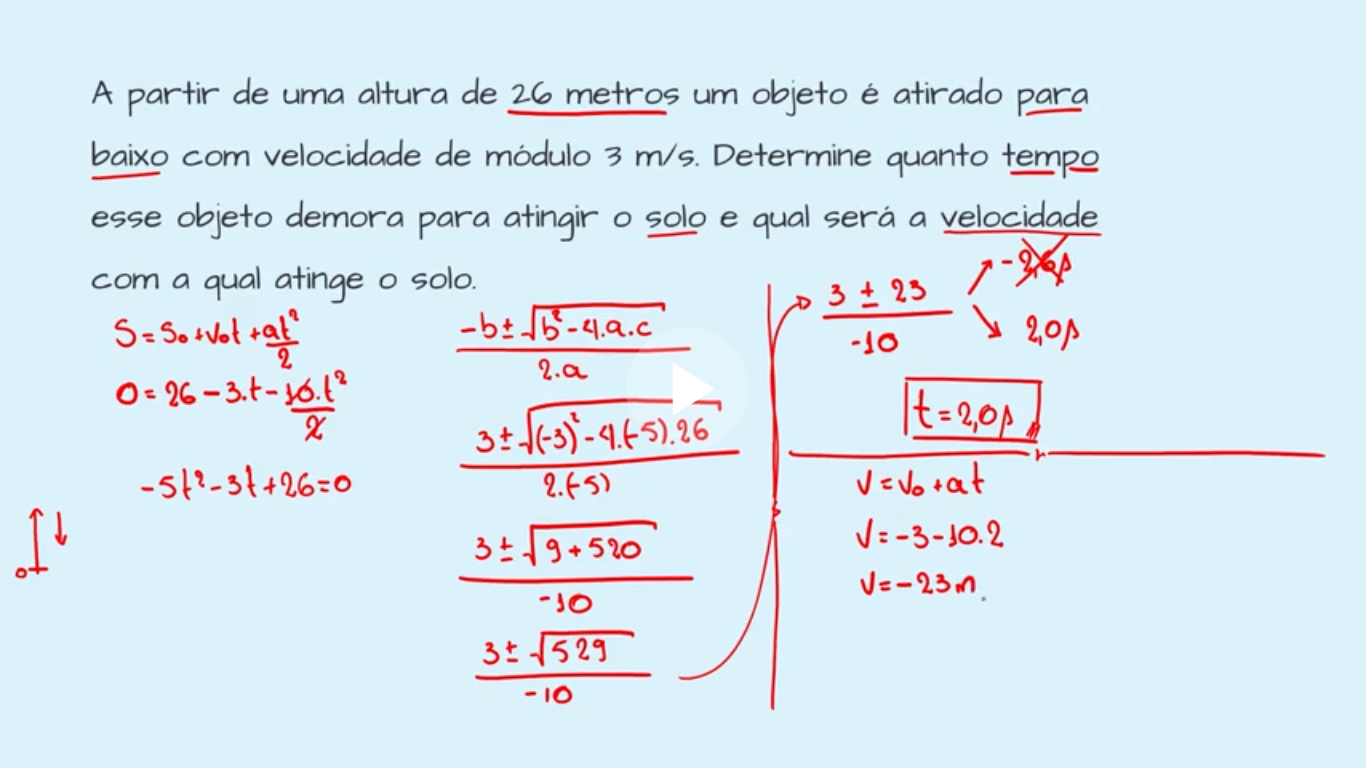 A partir de uma altura de 26 metros um objeto é atirado para
baixo com velocidade de módulo 3 m/s. Determine quanto tempo
esse objeto demora para atingir o solo e qual será a velocidade
com a qual atinge o solo.
S = S₀ + v₀t + at²/2
0 = 26 - 3.t - 10.t²/2
-5t² - 3t + 26 = 0
0
-b ± √b² - 4.a.c
2.a
3 ± √(-3)² - 4.(-5).26
2.(-5)
3 ± √9 + 520
-10
3 ± √529
-10
3 ± 23
-10
-2,6s
2,0s
t = 2,0s
V = V₀ + at
V = -3 - 10.2
V = -23m